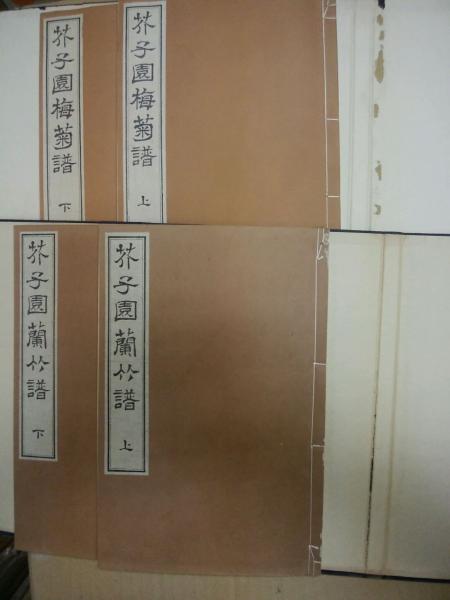 芥子園梅菊譜 上
芥子園梅菊譜 下
芥子園蘭竹譜 上
芥子園蘭竹譜 下